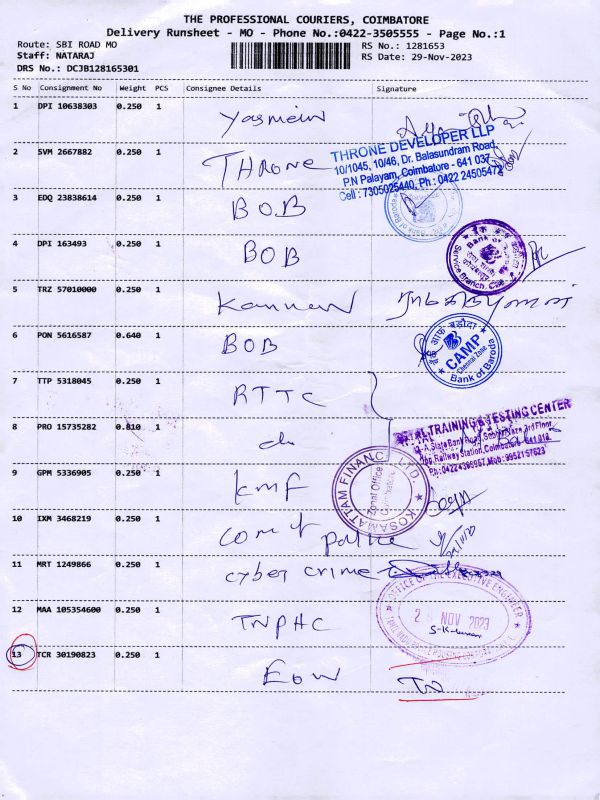 THE PROFESSIONAL COURIERS, COIMBATORE
Delivery Runsheet - MO - Phone No.:0422-3505555 - Page No.:1
Route: SBI ROAD MO
RS No.: 1281653
Staff: NATARAJ
RS Date: 29-Nov-2023
DRS No.: DCJB128165301
S No Consignment No Weight PCS Consignee Details Signature
1 DPI 10638303 0.250 1 Yasmein
THRONE DEVELOPER LLP
10/1045, 10/46, Dr. Balasundram Road,
P.N Palayam, Coimbatore - 641 037
Cell : 7305025440, Ph : 0422 24505472
2 SVM 2667882 0.250 1 THRONE
3 EDQ 23838614 0.250 1 BOB
4 DPI 163493 0.250 1 BOB
Service Branch, Cbe
5 TRZ 57010000 0.250 1 Kannan
6 PON 5616587 0.640 1 BOB
बैंक ऑफ़ बड़ौदा
CAMP
Chennai Zone
Bank of Baroda
7 TTP 5318045 0.250 1 RTTC
TRAINING & TESTING CENTER
8 PRO 15735282 0.810 1 do
9 GPM 5336905 0.250 1 KMF
KOSAMATTAM FINANCE LTD.
Zonal Office
Coimbatore
10 IXM 3468219 0.250 1 Com of Police
11 MRT 1249866 0.250 1 cyber crime
OFFICE OF THE EXECUTIVE ENGINEER
NOV 2023
12 MAA 105354600 0.250 1 TNPHC
13 TCR 30190823 0.250 1 EOW